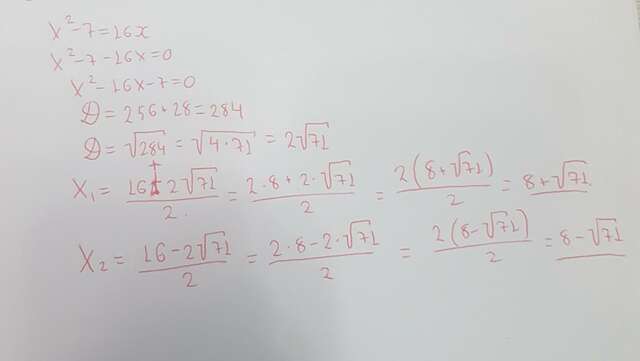 x²-7=16x
x²-7-16x=0
x²-16x-7=0
D=256+28=284
D=√284=√4·71=2√71
X₁=(16+2√71)/2=(2·8+2·√71)/2=2(8+√71)/2=8+√71
X₂=(16-2√71)/2=(2·8-2·√71)/2=2(8-√71)/2=8-√71